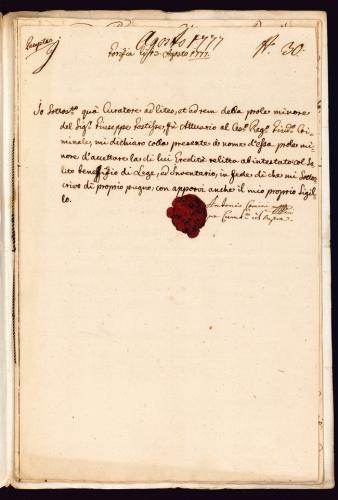 Agosto 1777
N.° 30.
Agosto 1777.
Io Sottos.to quà Curatore ad lites, et ad rem della prole minore
del Sig.r Giuseppe fù Attuario al Ces.o Reg.o Giud.o Cri-
minale, mi dichiaro colla presente à nome d'essa prole mi-
nore d'accettare la di lui Eredità relitta ab intestato col So-
lito beneffizio di Legge, ed Inventario, in fede di che mi Sottos-
crivo di proprio pugno, con apporvi anche il mio proprio Sigil-
lo.
Antonio